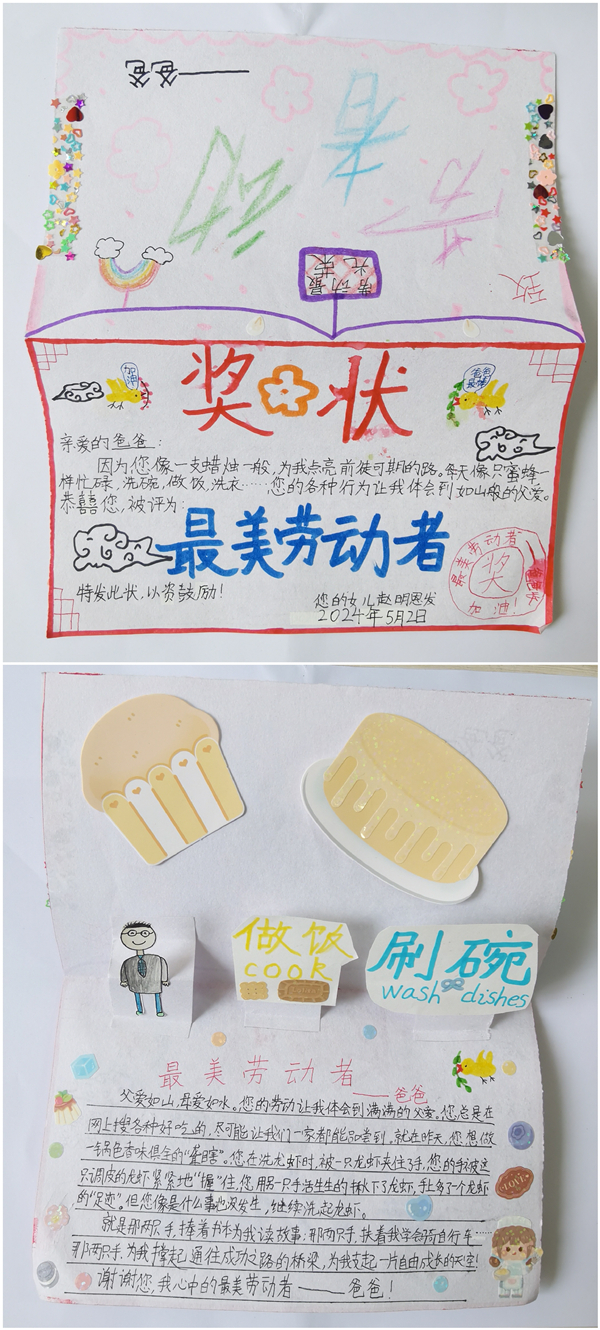 ——爸爸
最光荣
劳动
致
奖状
加油
爸爸最棒
亲爱的爸爸：
因为您像一支蜡烛一般，为我点亮前徒可期的路。每天像只蜜蜂一
样忙碌，洗碗，做饭，洗衣……您的各种行为让我体会到如山般的父爱。
恭囍您，被评为：
最美劳动者
特发此状，以资鼓励！
您的女儿赵明恩发
2024年5月2日
最美劳动者
奖
加油！
做饭
cook
刷碗
wash dishes
最美劳动者
——爸爸
父爱如山，母爱如水。您的劳动让我体会到满满的父爱。您总是在
网上搜各种好吃的，尽可能让我们一家都能品尝到，就在昨天，您想做
一锅色香味俱全的“聋瞎”。您在洗龙虾时，被一只龙虾夹住了手，您的手被这
只调皮的龙虾紧紧地“握”住，您用另一只手活生生的揪下了龙虾，手上多了个龙虾
的“足迹”。但您像是什么事也没发生，继续洗起龙虾。
就是那两只手，捧着书本为我读故事；那两只手，扶着我学会骑自行车……
那两只手，为我撑起通往成功之路的桥梁，为我支起一片自由成长的天空！
谢谢您，我心中的最美劳动者——爸爸！
LOVE